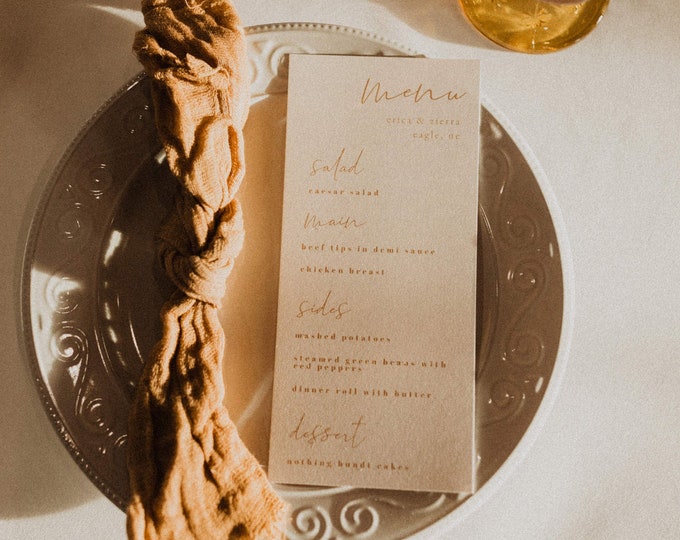 menu
erica & sierra
eagle, ne
salad
caesar salad
main
beef tips in demi sauce
chicken breast
sides
mashed potatoes
steamed green beans with
red peppers
dinner roll with butter
dessert
nothing bundt cakes